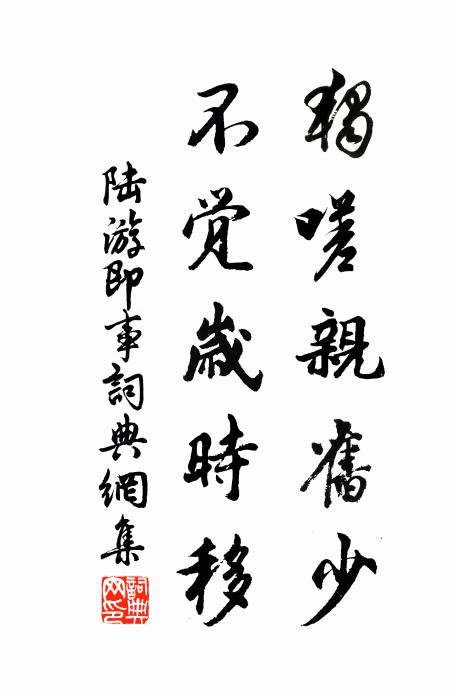 獨嗟親舊少
不覺歲時移
陸游即事詞典網集
詞典網印